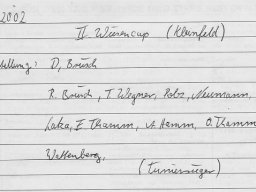 2002
II. Wiesencup (Kleinfeld)
tellung: D. Brüsch
R. Brüsch, T. Wegner, Pobs, Neumann,
Laka, E. Thamm, A. Hemm, O. Thamm
Wittenberg,
(Turniersieger)